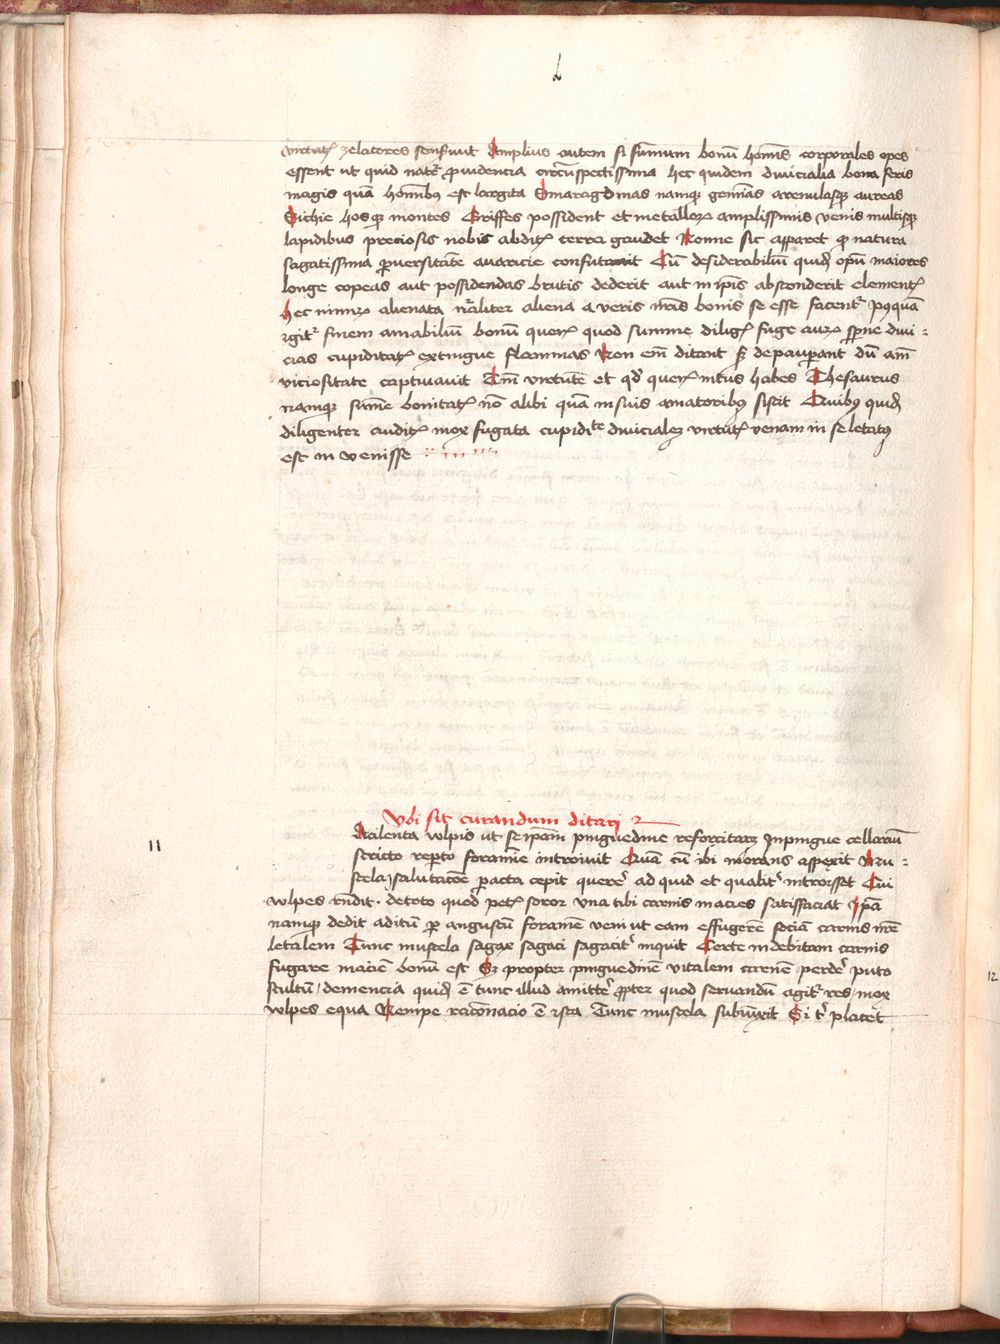 virtutꝭ zelatores senserunt Amplius autem si summum bonū homīs corporales opes
essent ut quid natͤ ꝓuidencia circūspectissima hec quidem diuicialia bona feris
magis quā homībꝰ est largita Smaragdinas namqꝫ gemmas arenulasqꝫ aureas
Sichie hosqꝫ montes Griffes possident et metallorꝫ amplissimis venis multisqꝫ
lapidibus preciosis nobis abditꝭ terra gaudet Nonne sic apparet ꝙ natura
sagatissima ꝑuersitatē auaricie confutauit Cū desiderabiliū quidē opū maiores
longe copeas aut possidendas brutis dederit aut in ip̄is absconderit elementꝭ
hec nimirꝫ alienata nāliter aliena a veris nr̄is bonis se esse facentꝭ pꝰquā
igitꝭ finem amabiliū bonū querꝭ quod summe diligꝭ fuge aurꝫ sperne diui
cias cupiditatꝭ extingue flammas Non em̄ ditant sꝫ depauperant dū am̄
viciositate captiuauit Tm̄ virtutē et qd̄ querꝭ intus habes Thesaurus
namqꝫ summe bonitatꝭ nō alibi quā in suis amatoribꝰ sistit Quibꝰ quidē
diligenter auditꝭ mox fugata cupidiᵗᵉ diuicialeꝫ virtutꝭ venam in se letatꝰ
est in venisse
Vbi sit curandum ditari
Macilenta vulpis ut se ip̄am pinguedine refocitarꝫ Inpingue cellariū
stricto reꝑto foramīe introiuit Quā cū ibi morans aspexit Mu
stela salutacōe ꝑacta cepit querͤ ad quid et qualitͤ introisset Cui
11
vulpes rn̄dit detoto quod petꝭ soror una tibi carnis macies satisfaciat Ip̄a
namqꝫ dedit aditū ꝑ angustū foramē veni ut eam effugerē sociā carnis nr̄e
letalem Tunc mustela sagax sagaci sagacitͤ inquit Certe indebitam carnis
fugare maciē bonū est Sꝫ propter pinguedinē vitalem carnē perdͤ puto
stultū demencia quidē ē tunc illud amittͤ ꝓpter quod seruandū agitͬ res mox
vulpes equa Nempe racōnacio ē ista Tunc mustela subiūxit Si tͥ placet